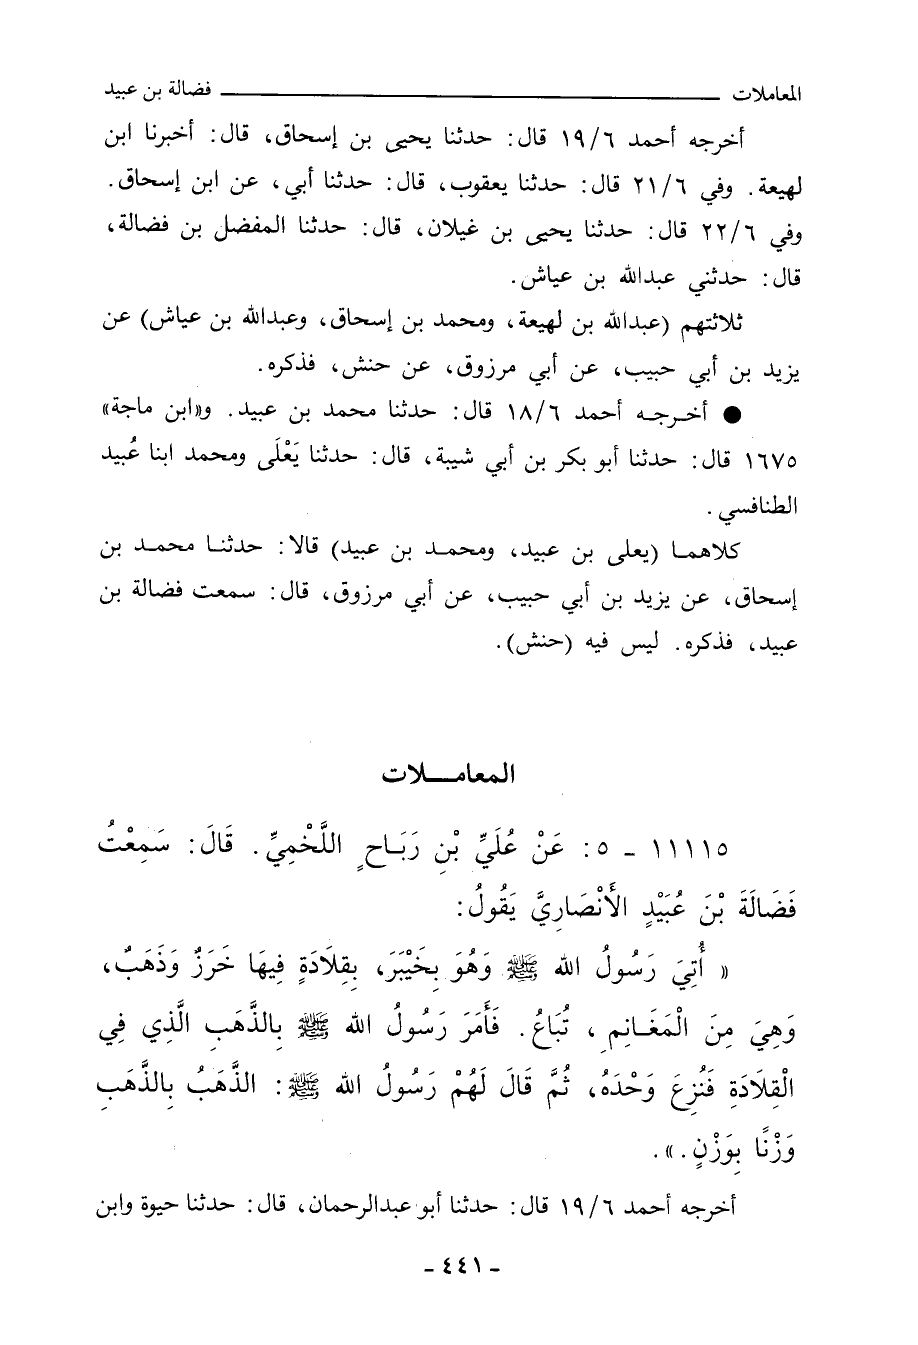 المعاملات ــــــــــــــــــــ فضالة بن عبيد
أخرجه أحمد ١٩/٦ قال: حدثنا يحيى بن إسحاق، قال: أخبرنا ابن
لهيعة. وفي ٢١/٦ قال: حدثنا يعقوب، قال: حدثنا أبي، عن ابن إسحاق.
وفي ٢٢/٦ قال: حدثنا يحيى بن غيلان، قال: حدثنا المفضل بن فضالة،
قال: حدثني عبدالله بن عياش.
ثلاثتهم (عبدالله بن لهيعة، ومحمد بن إسحاق، وعبدالله بن عياش) عن
يزيد بن أبي حبيب، عن أبي مرزوق، عن حنش، فذكره.
● أخرجه أحمد ١٨/٦ قال: حدثنا محمد بن عبيد. و«ابن ماجة»
١٦٧٥ قال: حدثنا أبو بكر بن أبي شيبة، قال: حدثنا يَعْلَى ومحمد ابنا عُبيد
الطنافسي.
كلاهما (يعلى بن عبيد، ومحمد بن عبيد) قالا: حدثنا محمد بن
إسحاق، عن يزيد بن أبي حبيب، عن أبي مرزوق، قال: سمعت فضالة بن
عبيد، فذكره. ليس فيه (حنش).
المعامـــلات
١١١١٥ - ٥: عَنْ عُلَيِّ بْنِ رَبَاحٍ اللَّخْمِيِّ. قَالَ: سَمِعْتُ
فَضَالَةَ بْنَ عُبَيْدٍ الأَنْصَارِيَّ يَقُولُ:
« أُتِيَ رَسُولُ الله ﷺ وَهُوَ بِخَيْبَرَ، بِقِلَادَةٍ فِيهَا خَرَزٌ وَذَهَبٌ،
وَهِيَ مِنَ الْمَغَانِمِ، تُبَاعُ. فَأَمَرَ رَسُولُ الله ﷺ بِالذَّهَبِ الَّذِي فِي
الْقِلَادَةِ فَنُزِعَ وَحْدَهُ، ثُمَّ قَالَ لَهُمْ رَسُولُ الله ﷺ: الذَّهَبُ بِالذَّهَبِ
وَزْنًا بِوَزْنٍ.».
أخرجه أحمد ١٩/٦ قال: حدثنا أبو عبدالرحمان، قال: حدثنا حيوة وابن
- ٤٤١ -